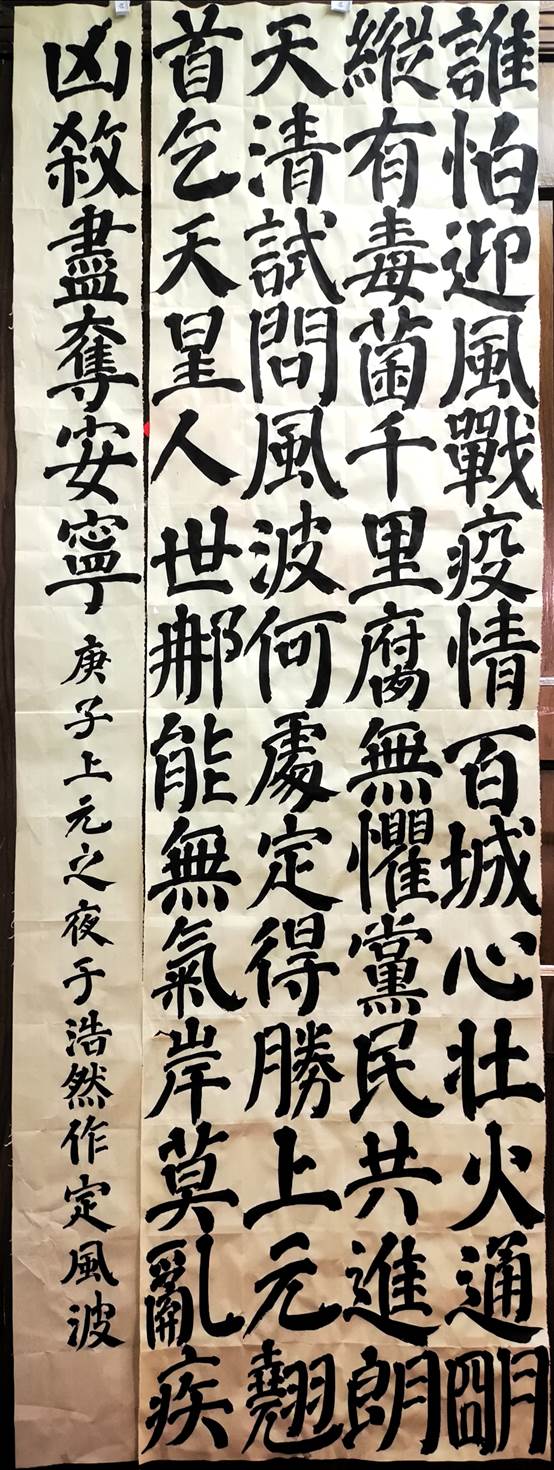 誰怕迎風戰疫情百城心壯火通朙
縱有毒菌千里腐無懼黨民共進朗
天清試問風波何處定得勝上元翹
首乞天皇人世那能無氣岸莫亂疾
凶殺盡奪安寧庚子上元之夜于浩然作定風波